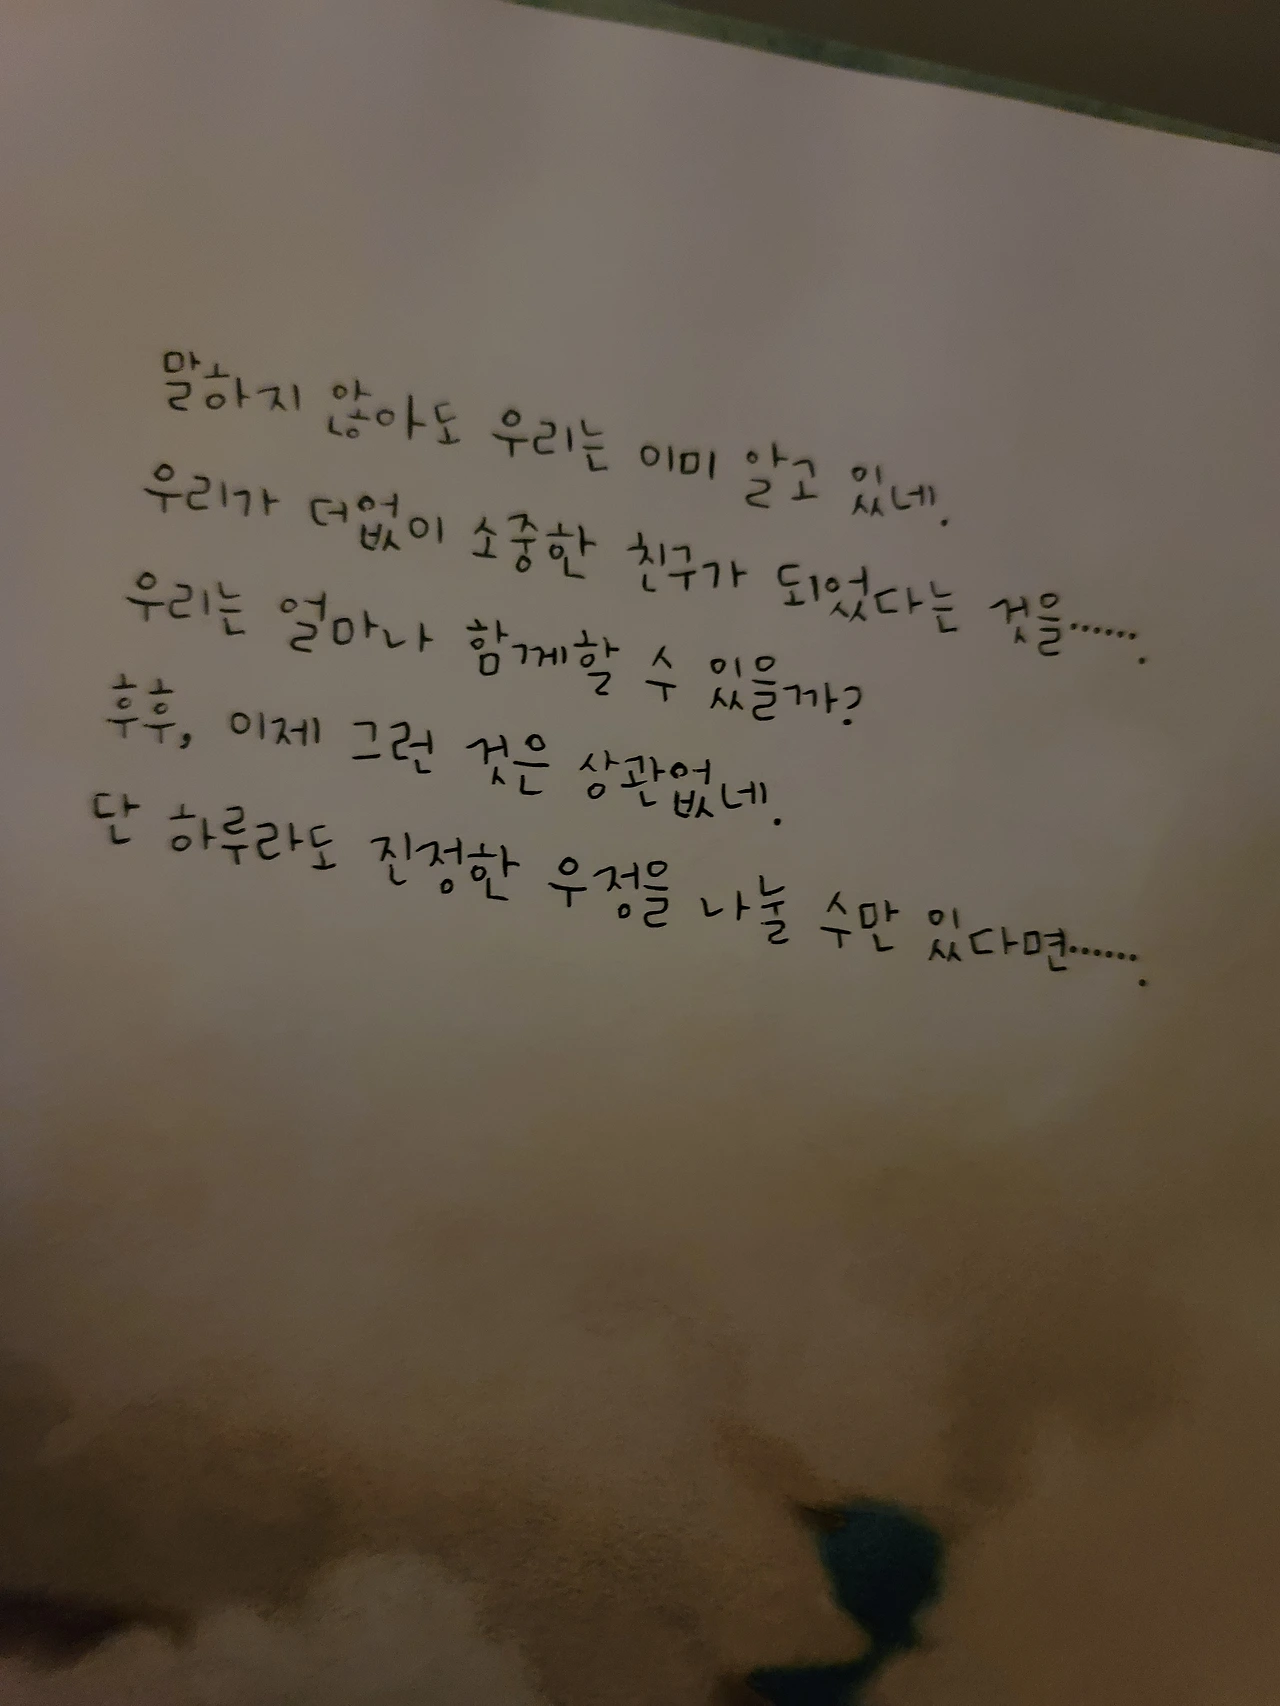 말하지 않아도 우리는 이미 알고 있네.
우리가 더없이 소중한 친구가 되었다는 것을…….
우리는 얼마나 함께할 수 있을까?
후후, 이제 그런 것은 상관없네.
단 하루라도 진정한 우정을 나눌 수만 있다면…….